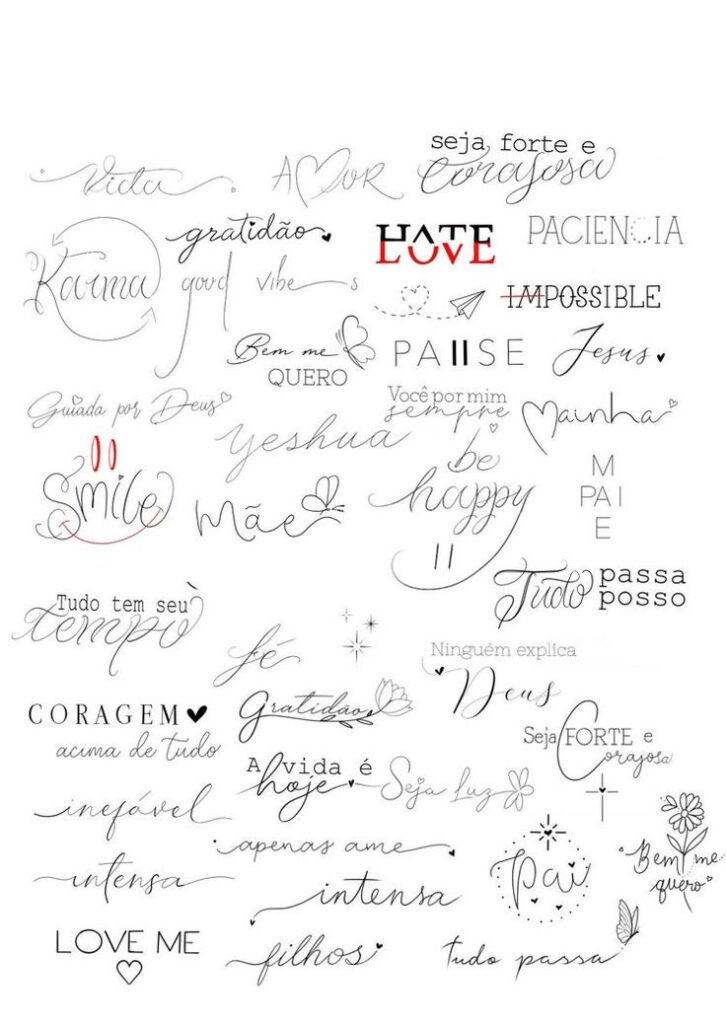 Vida
AMOR
seja forte e
Corajosa
Karma
gratidão
HATE
LOVE
PACIENCIA
good vibes
IMPOSSIBLE
Bem me
QUERO
PAUSE
Jesus
Guiada por Deus
Yeshua
Você por mim
sempre
Mainha
Smile
Mãe
be
happy
M
PAI
E
Tudo passa
posso
Tudo tem seu
tempo
fé
Ninguém explica
Deus
CORAGEM
acima de tudo
Gratidão
Seja FORTE e
Corajosa
A vida é
hoje
Seja Luz
inefável
apenas ame
intensa
intensa
Pai
Bem me
quero
LOVE ME
filhos
tudo passa